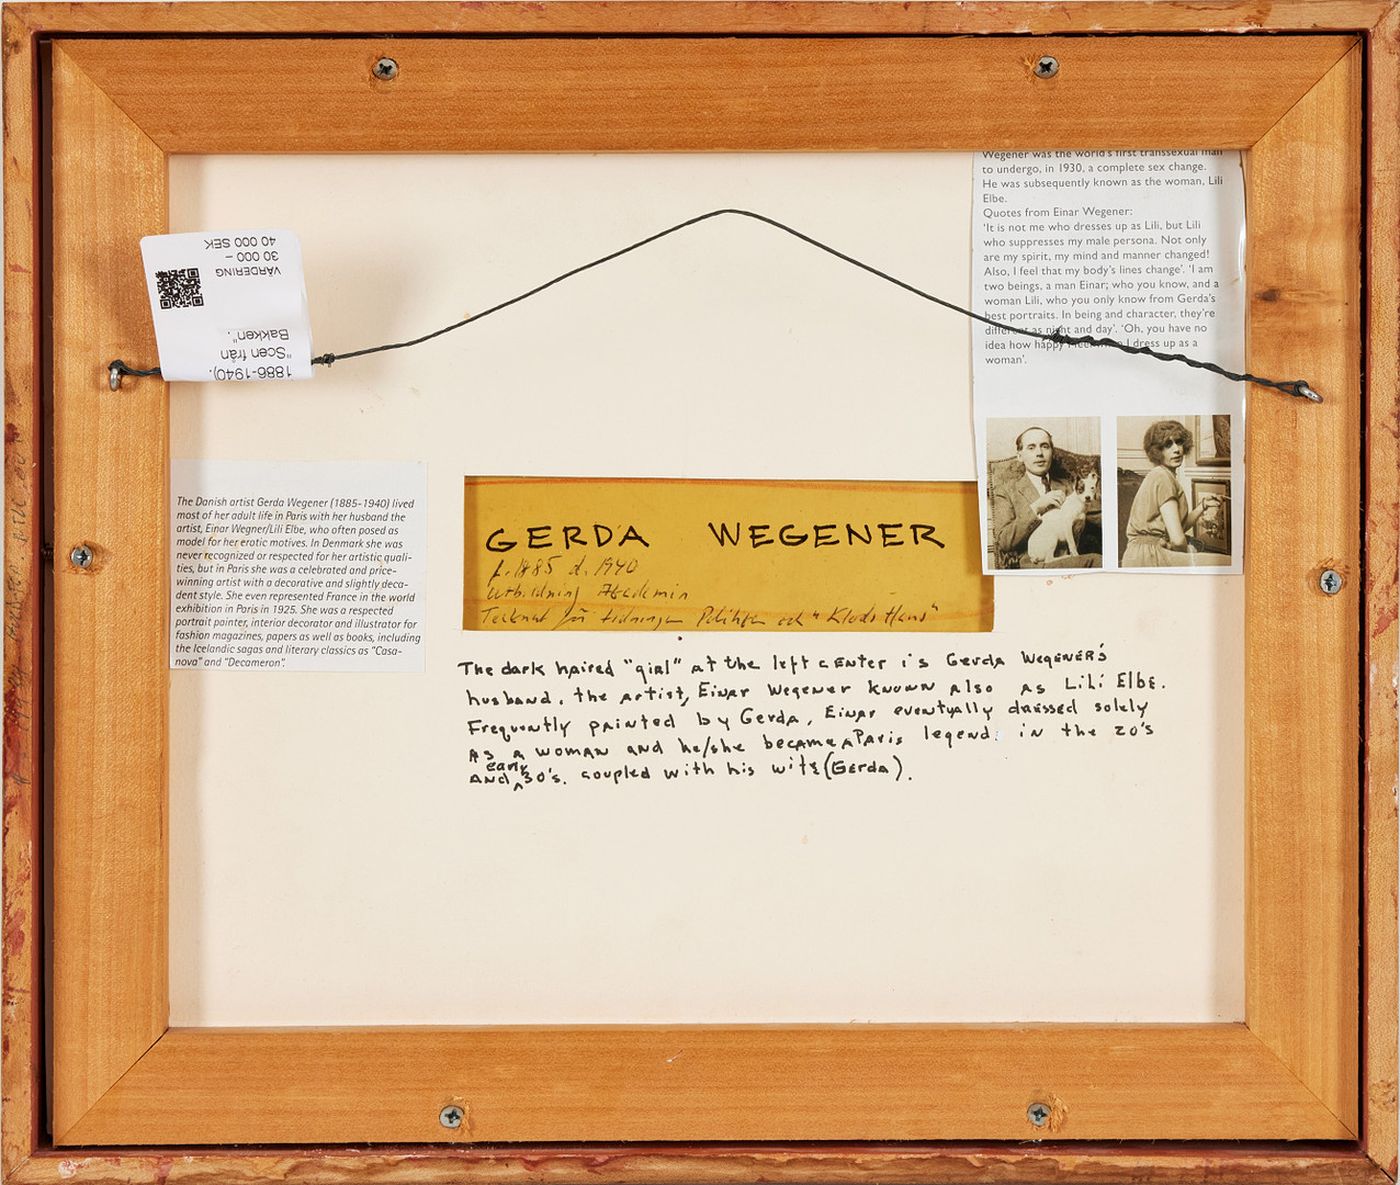 1886-1940).
"Scen från
Bakken".
VÄRDERING
30 000 –
40 000 SEK
Wegener was the world's first transsexual man
to undergo, in 1930, a complete sex change.
He was subsequently known as the woman, Lili
Elbe.
Quotes from Einar Wegener:
'It is not me who dresses up as Lili, but Lili
who suppresses my male persona. Not only
are my spirit, my mind and manner changed!
Also, I feel that my body's lines change'. 'I am
two beings, a man Einar; who you know, and a
woman Lili, who you only know from Gerda's
best portraits. In being and character, they're
different as night and day'. 'Oh, you have no
idea how happy I dress up as a
woman'.
The Danish artist Gerda Wegener (1885-1940) lived
most of her adult life in Paris with her husband the
artist, Einar Wegner/Lili Elbe, who often posed as
model for her erotic motives. In Denmark she was
never recognized or respected for her artistic quali-
ties, but in Paris she was a celebrated and price-
winning artist with a decorative and slightly deca-
dent style. She even represented France in the world
exhibition in Paris in 1925. She was a respected
portrait painter, interior decorator and illustrator for
fashion magazines, papers as well as books, including
the Icelandic sagas and literary classics as "Casa-
nova" and "Decameron".
GERDA WEGENER
f. 1885 d. 1940
Utbildning Akademin
Tecknat för tidningen Politiken och "Klods Hans"
The dark haired "girl" at the left center is Gerda Wegener's
husband, the artist, Einar Wegener known also as Lili Elbe.
Frequently painted by Gerda, Einar eventually dressed solely
as a woman and he/she became a Paris legend in the 20's
and early 30's. coupled with his wife (Gerda).